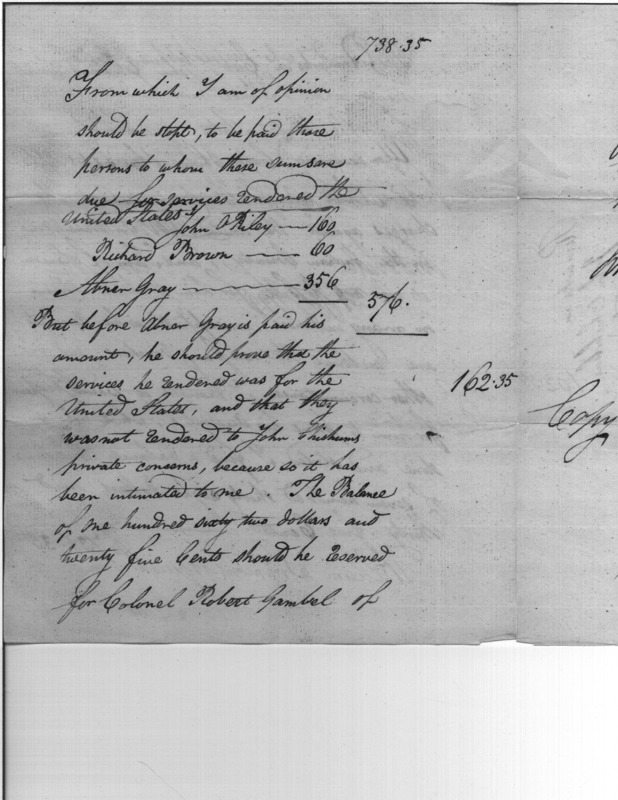 738.35
From which I am of opinion
should be stopt, to be paid those
persons to whom these sums are
due for services rendered the
United States
John O Riley — 160
Richard Brown — 60
Abner Gray — 356
576.
But before Abner Gray is paid his
amount, he should prove that the
services he rendered was for the
162.35
United States, and that they
was not rendered to John Chishums
private concerns, because so it has
been intimated to me. The Balance
of one hundred sixty two dollars and
twenty five Cents should be reserved
for Colonel Robert Gambel of
Copy